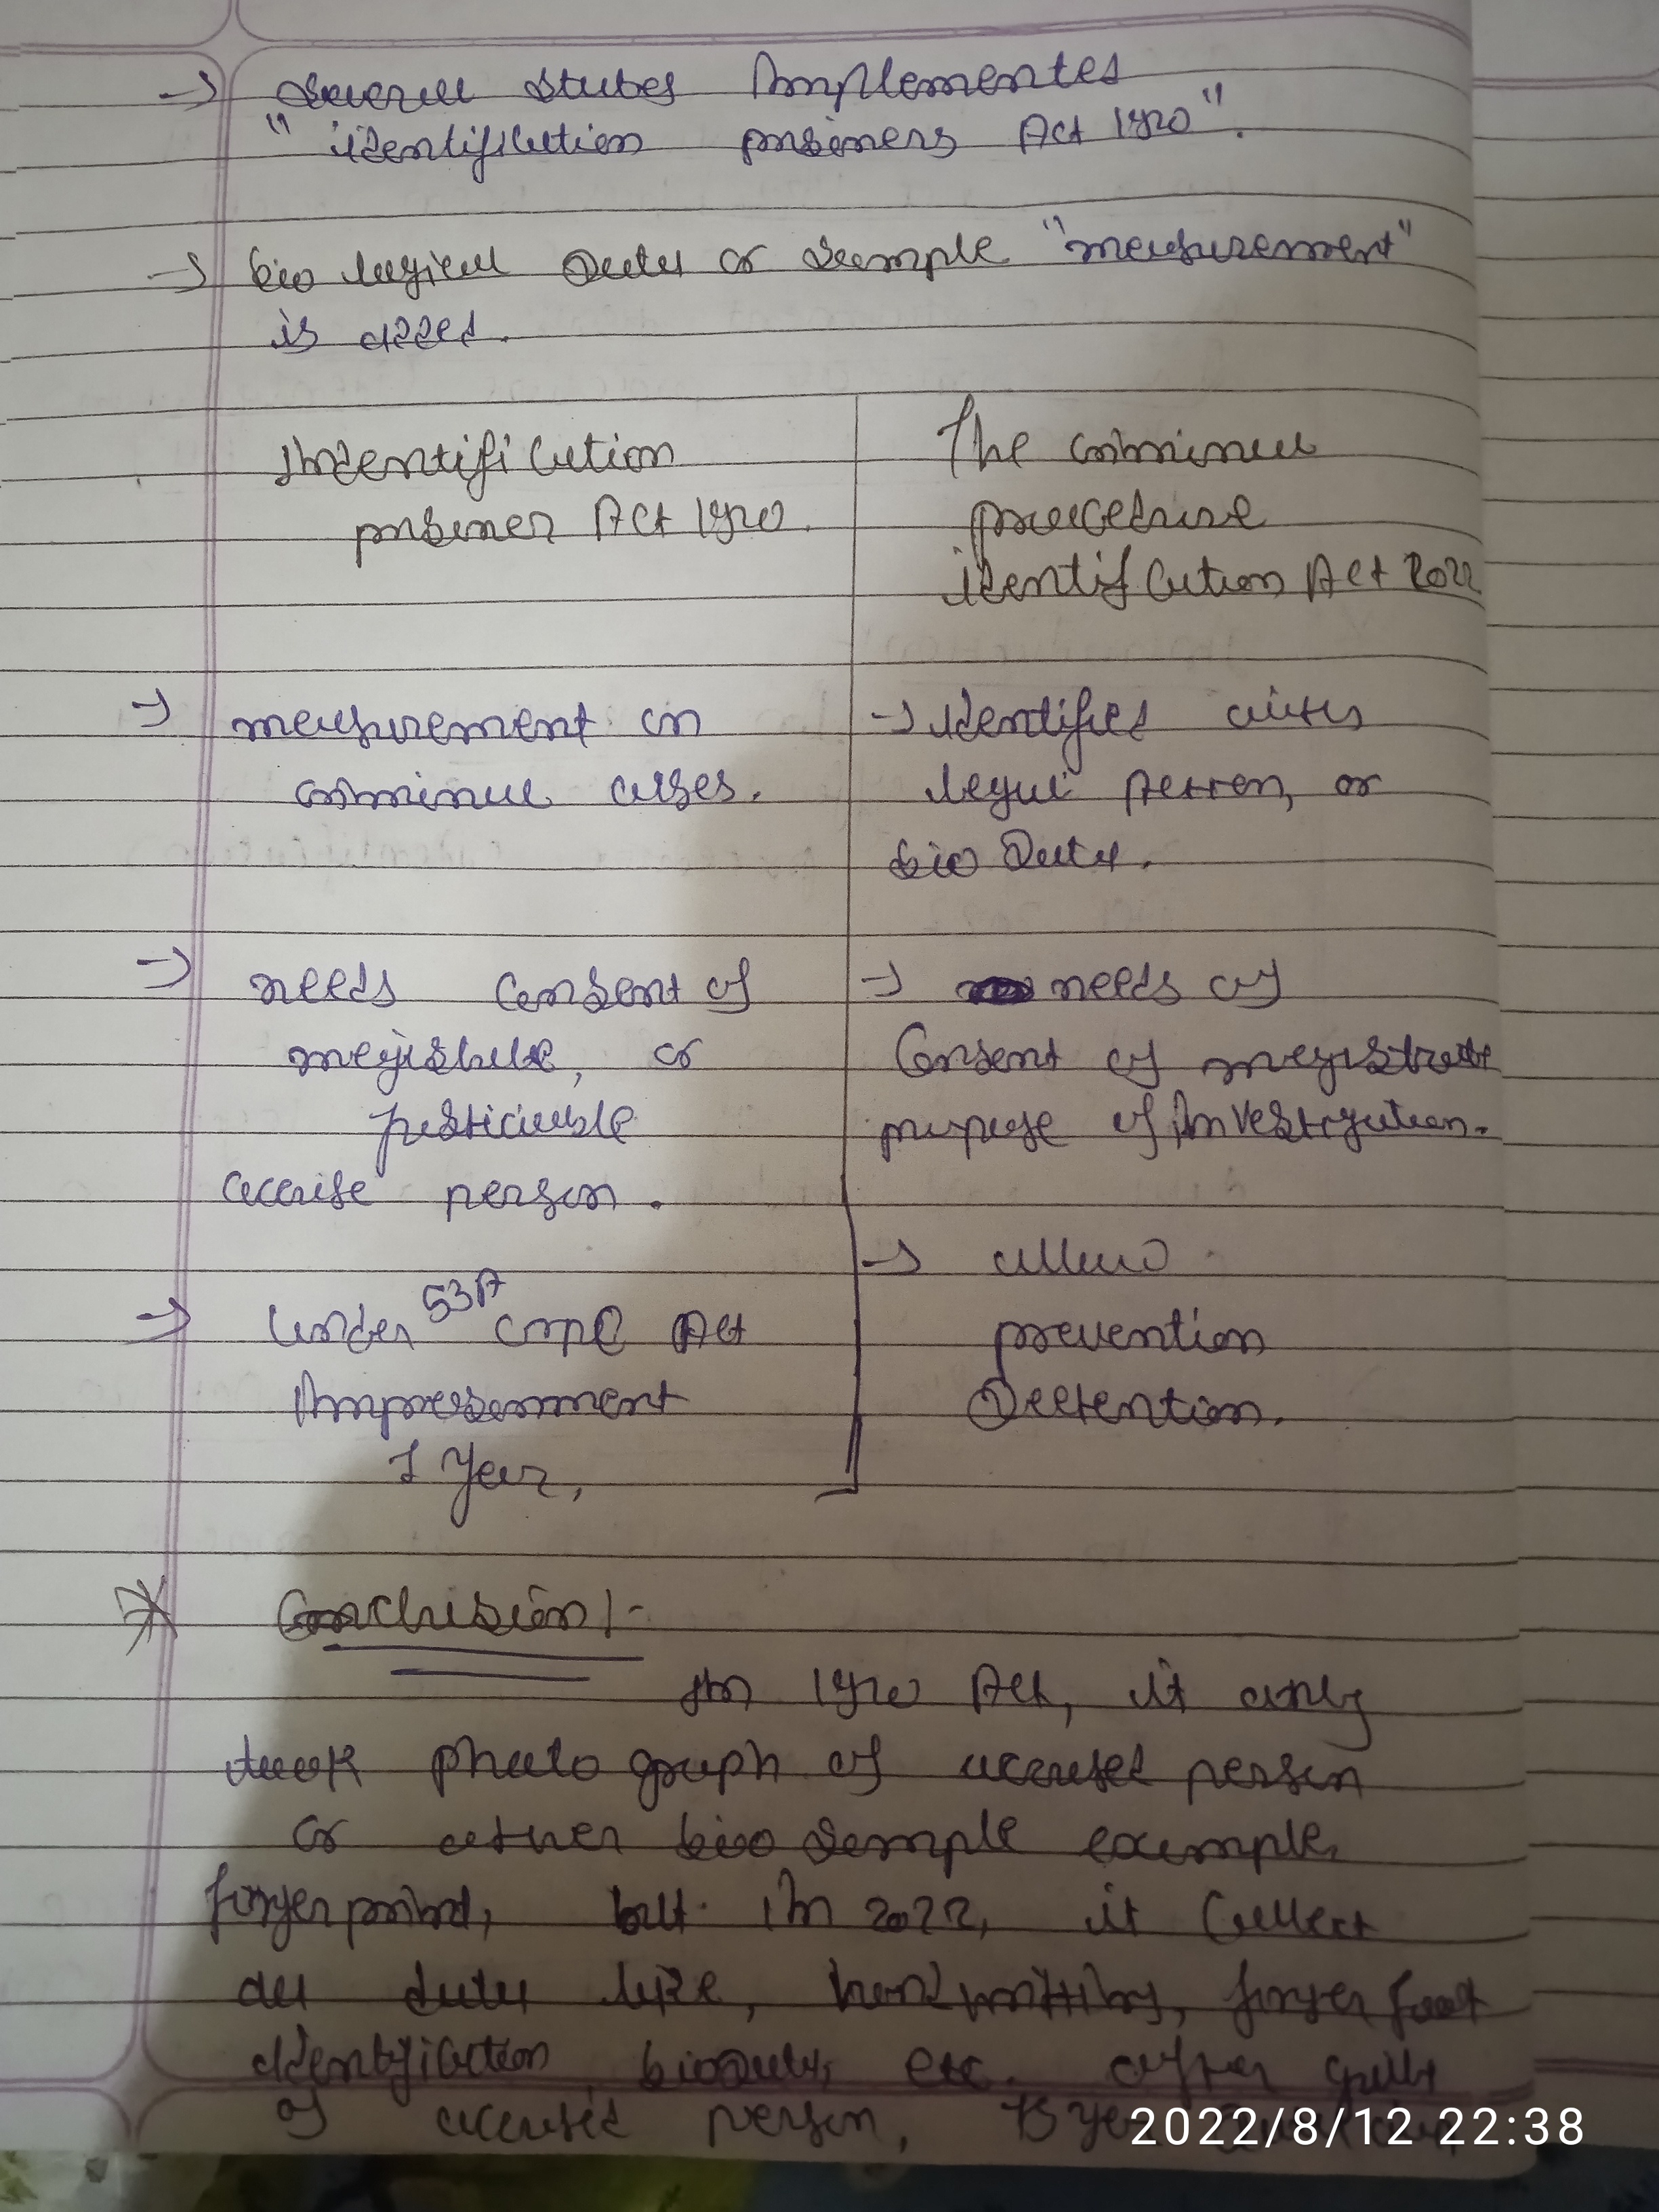 → Severel states Implementes
"identification prisiners Act 1920".
→ bio logical Data or Sample "measurement"
is added.
Indentification
prisiner Act 1920.
The criminal
procedure
identification Act 2022
→ measurement in
criminal cases.
→ identified
legal pattern, or
bio Data.
→ needs consent of
magistrate, or
accuse person.
→ needs of
Consent of magistrate
purpose of investigation.
→ Under 53A CrPC Act
Imprisonment
1 Year,
→ allow
prevention
Deetention.
* Conclusion:-
In 1920 Act, it only
took photo graph of accused person
or other bio sample example,
finger print, but In 2022, it Collect
all data like, hand writting, finger foot
identification, biodata, etc. after guilt
of accused person, 75 year
2022/8/12 22:38